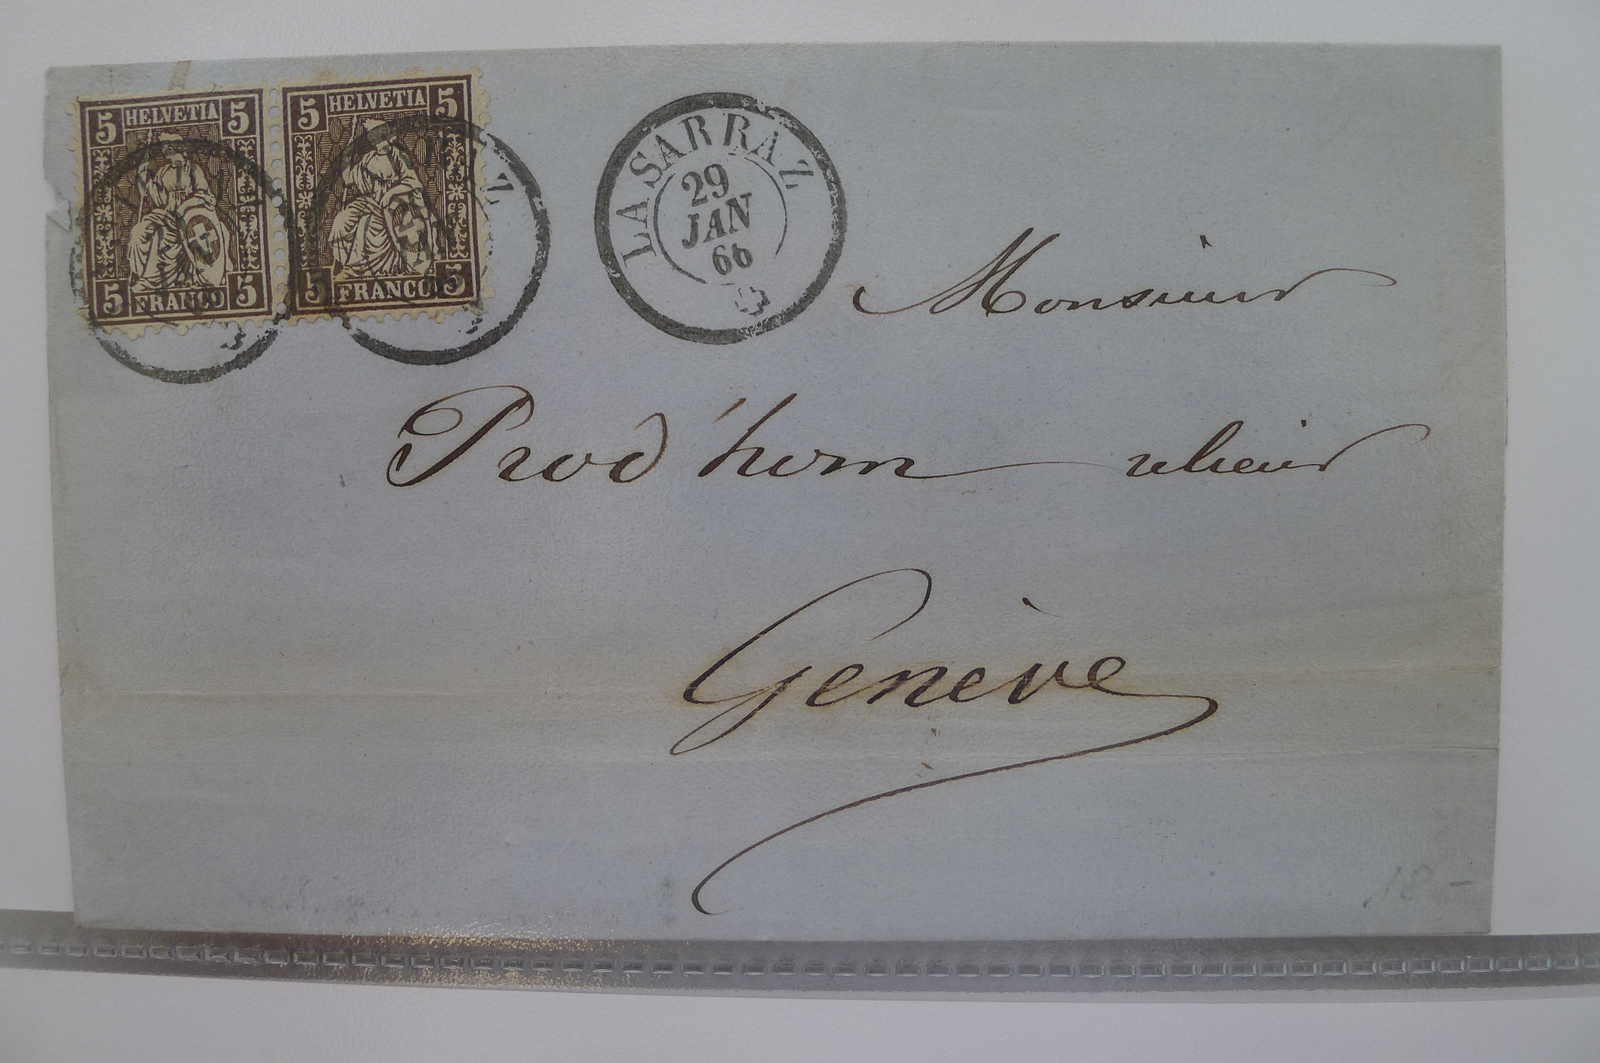 5 HELVETIA 5
5 FRANCO 5
5 HELVETIA 5
5 FRANCO 5
LA SARRAZ
29
JAN
66
Monsieur
Prod'hom relieur
Genève